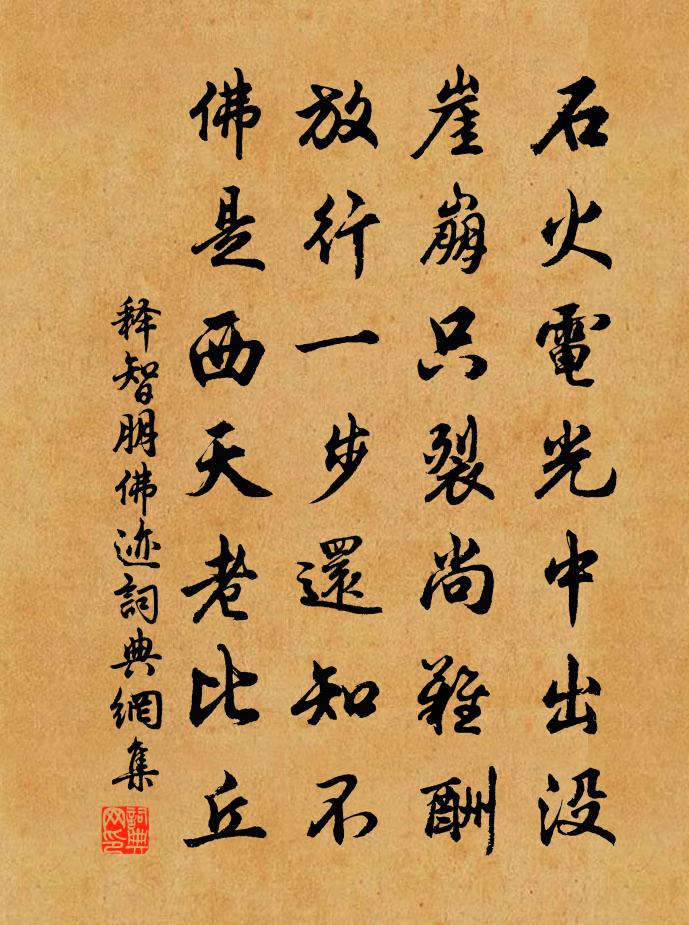 石火電光中出没
崖崩只裂尚難酬
放行一步還知不
佛是西天老比丘
释智朋佛迹詞典網集
詞典网印